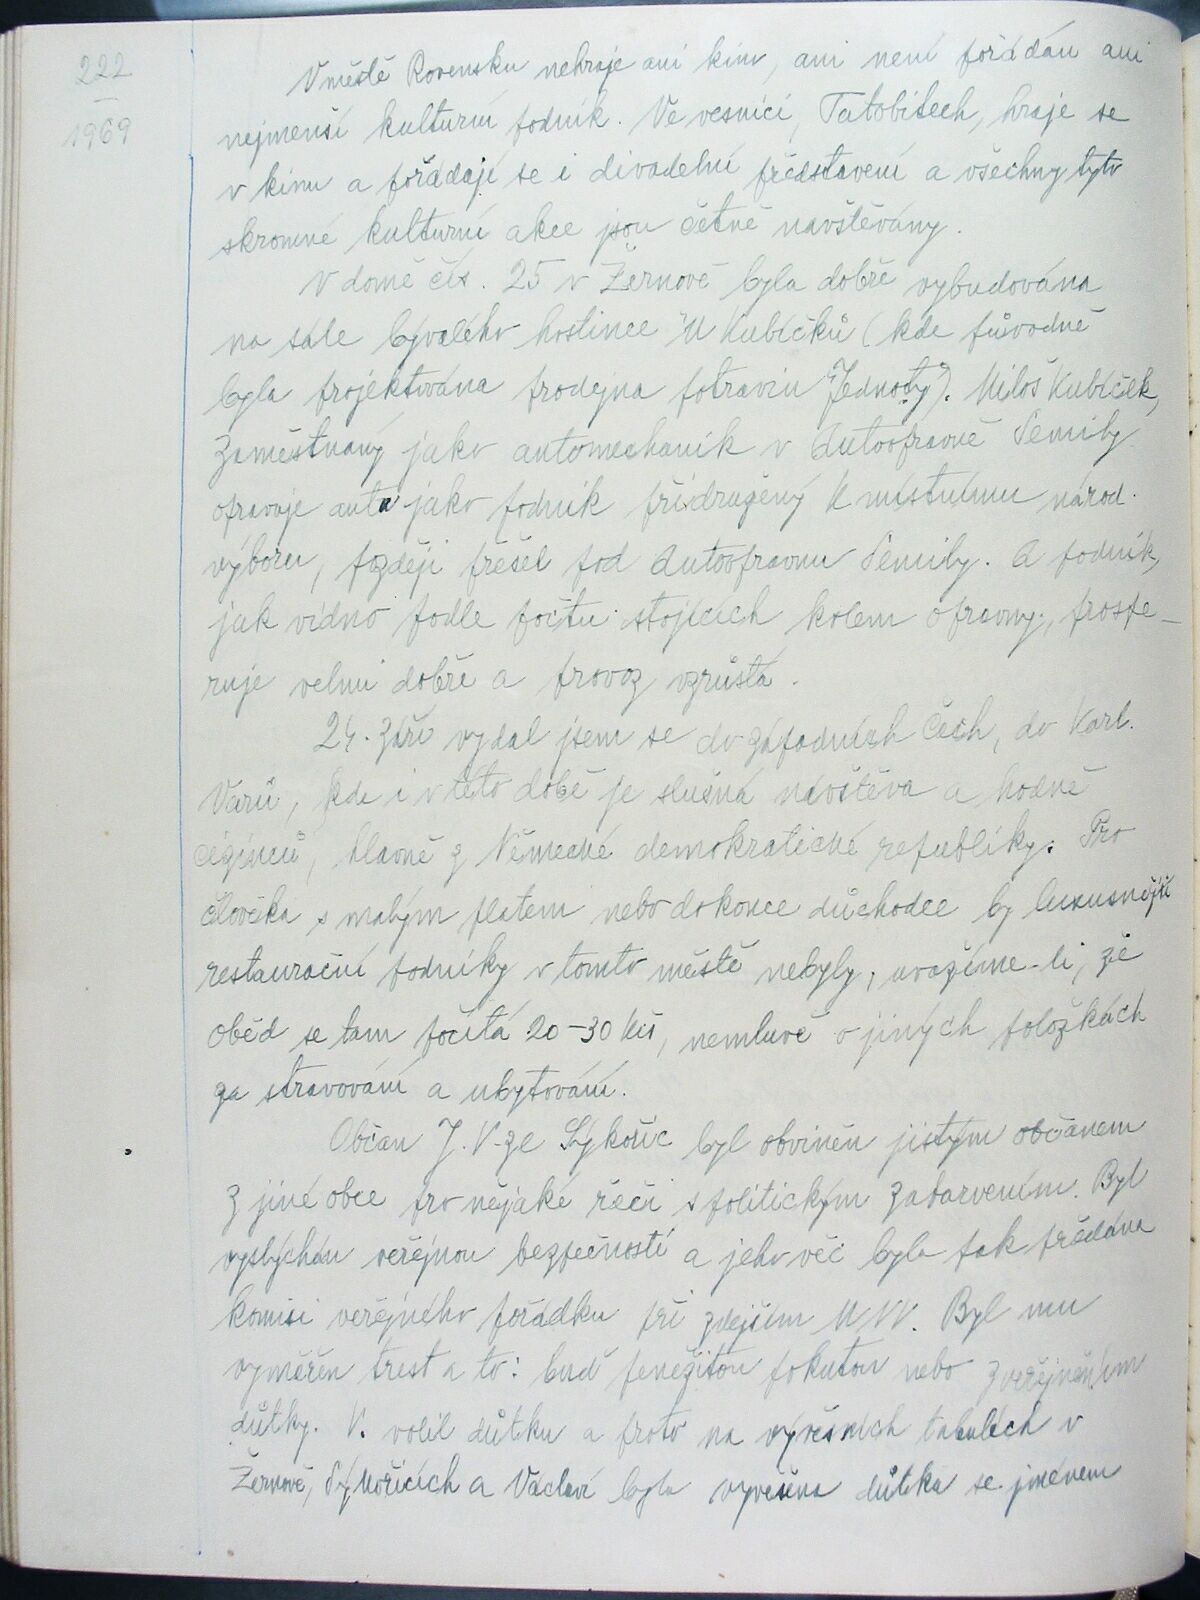 222
1969
V městě Rovensku nehraje ani kino, ani není pořádán ani
nejmenší kulturní podnik. Ve vesnici, Tatobitech, hraje se
v kinu a pořádají se i divadelní představení a všechny tyto
skromné kulturní akce jsou četně navštěvány.
V domě čís. 25 v Žernově byla dobře vybudována
na sále bývalého hostince "U Kubíčků (kde původně
byla projektována prodejna potravin "Jednoty"). Miloš Kubíček,
zaměstnaný jako automechanik v Autoopravně Semily
opravuje auta jako podnik přidružený k místnímu národ.
výboru, později přešel pod Autoopravnu Semily. A podnik,
jak vidno podle počtu stojících kolem opravny, prospe-
ruje velmi dobře a provoz vzrůstá.
24. září vydal jsem se do západních Čech, do Karl.
Varů, kde i v této době je slušná návštěva a hodně
cizinců, hlavně z Německé demokratické republiky. Pro
člověka s malým platem nebo dokonce důchodce by luxusnější
restaurační podniky v tomto městě nebyly, uvážíme-li, že
oběd se tam počítá 20-30 Kčs, nemluvě o jiných položkách
za stravování a ubytování.
Občan J. V. ze Sýkořic byl obviněn jistým občanem
z jiné obce pro nějaké řeči s politickým zabarvením. Byl
vyslýchán veřejnou bezpečností a jeho věc byla pak předána
komisi veřejného pořádku při zdejším MNV. Byl mu
vyměřen trest a to: buď peněžitou pokutou nebo zveřejněním
důtky. V. volil důtku a proto na vývěsních tabulích v
Žernově, Sýkořicích a Václaví byla vyvěšena důtka se jménem